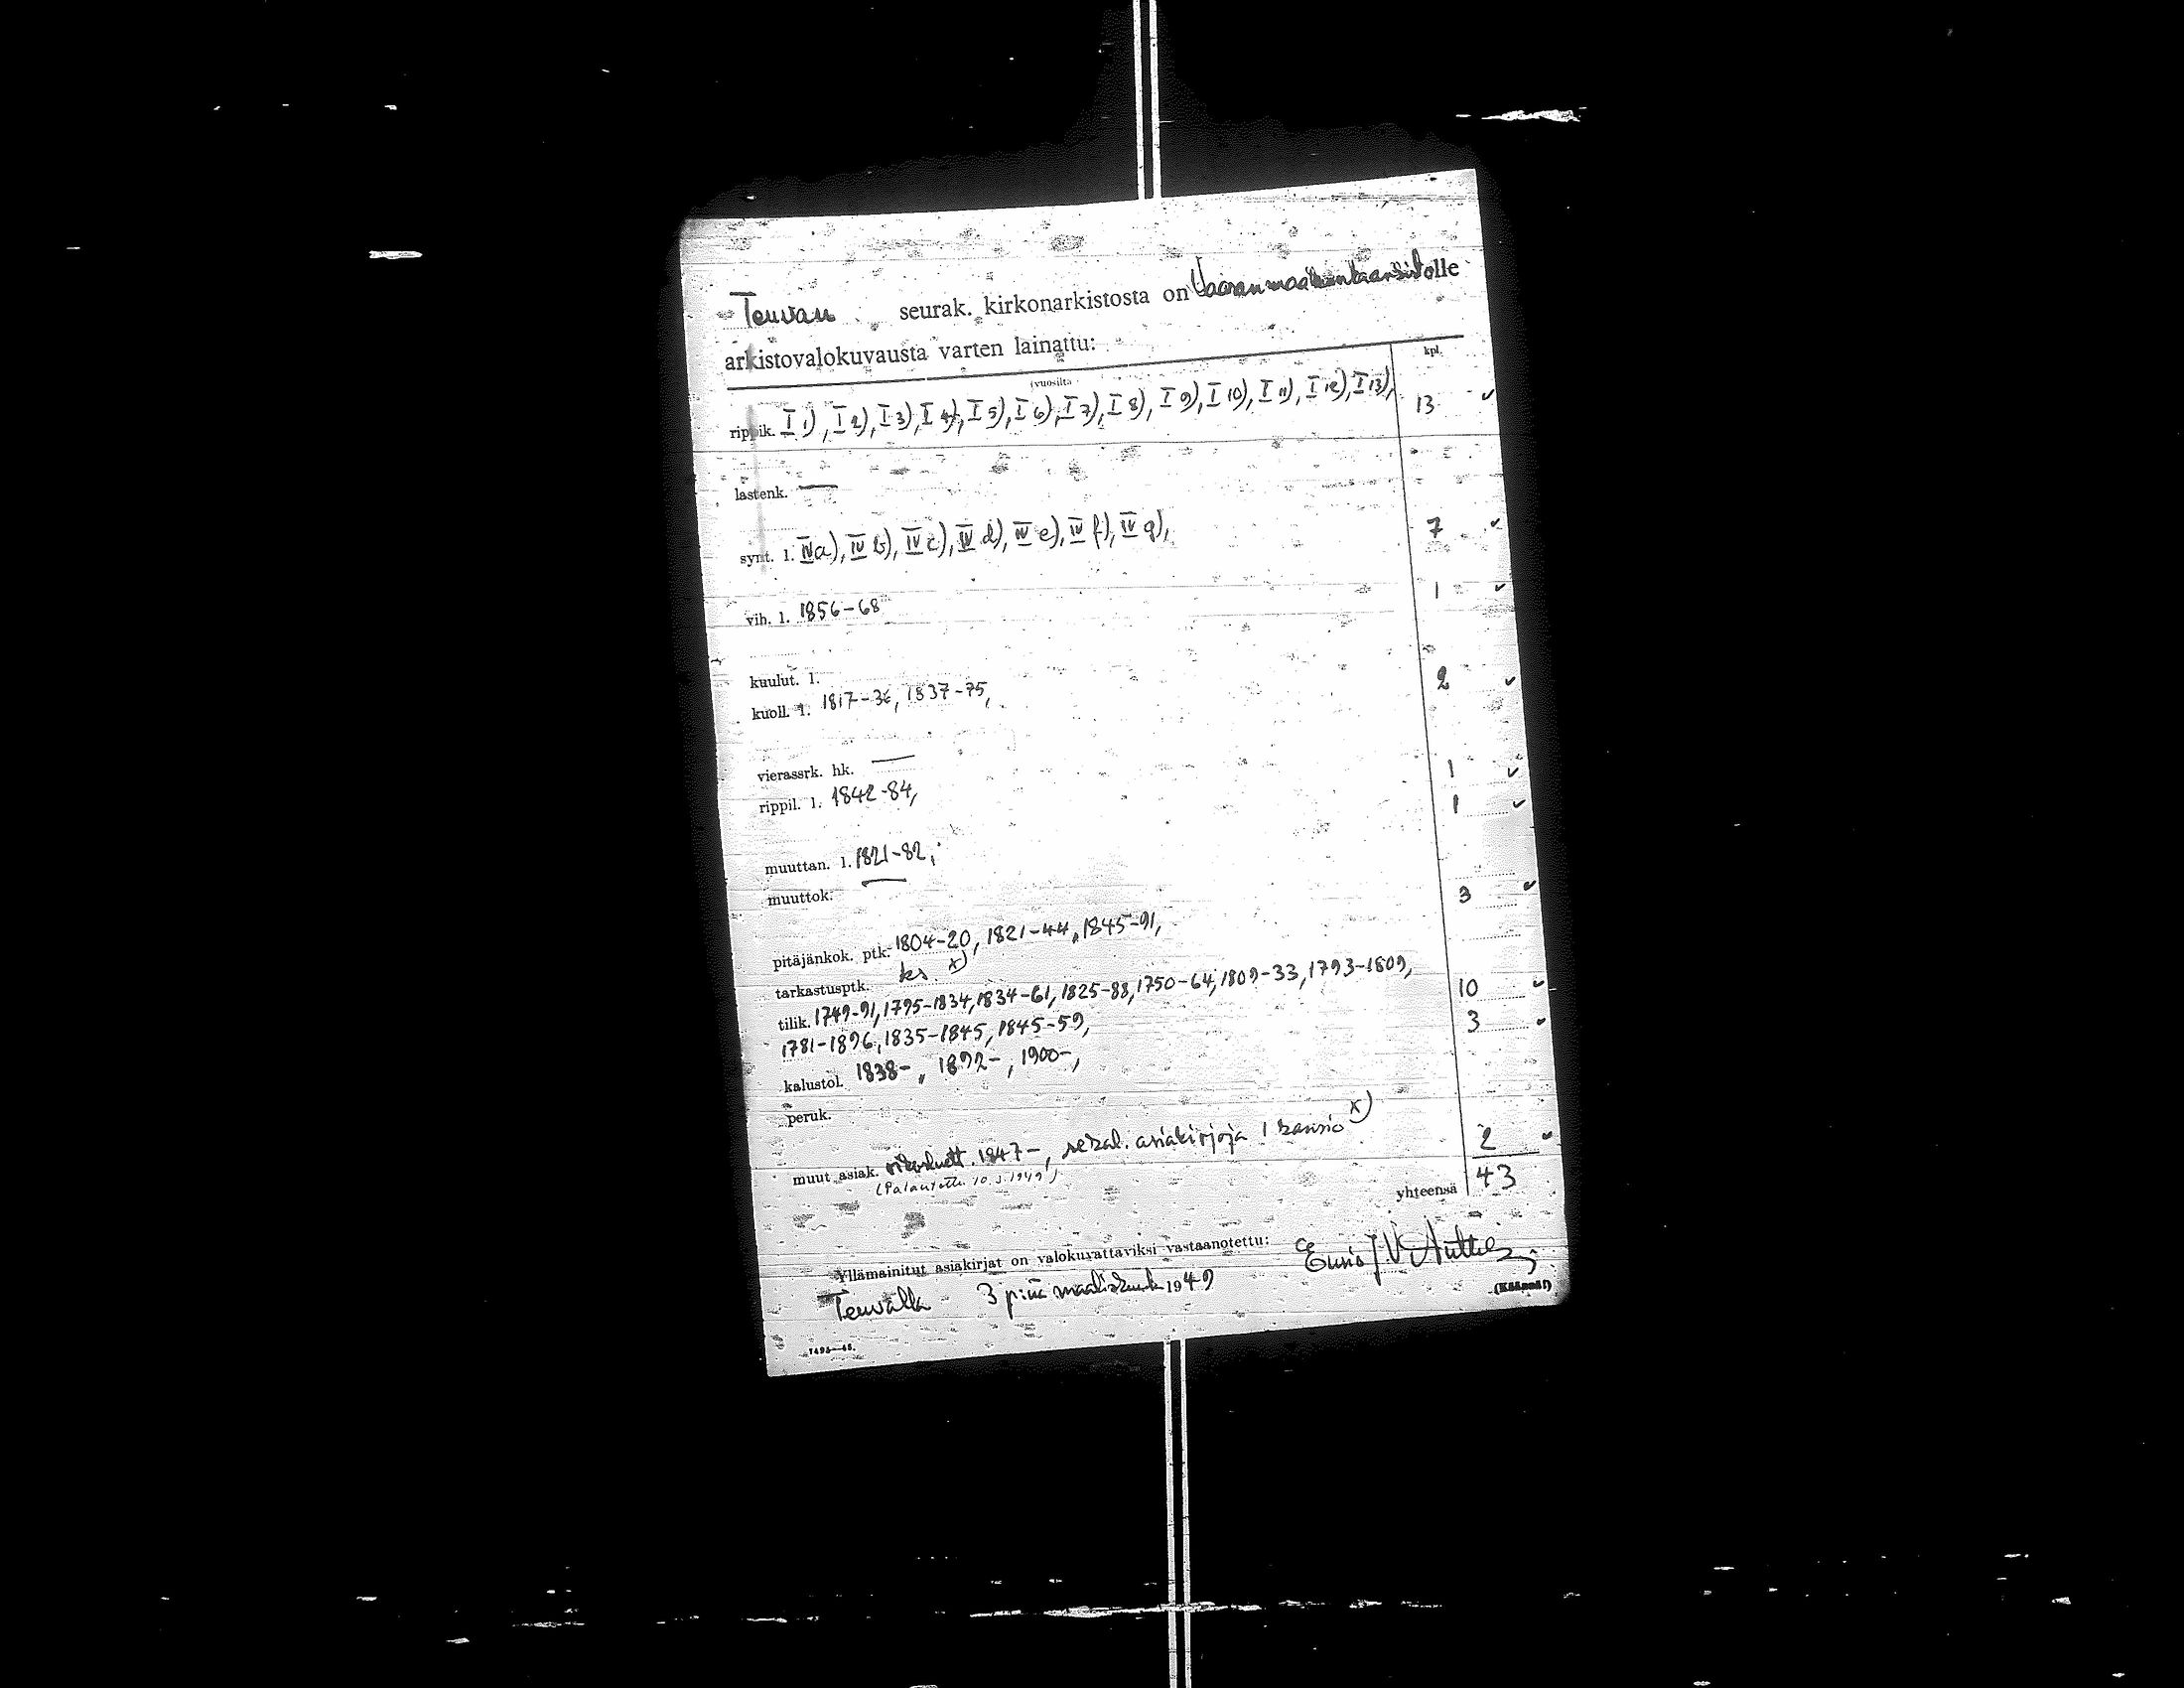 Teuvan seurak. kirkonarkistosta on Vaasan maakunta-arkistolle
arkistovalokuvausta varten lainattu:
(vuosilta kpl.
rippik. I 1), I 2), I 3), I 4), I 5), I 6), I 7), I 8), I 9), I 10), I 11), I 12), I 13), 13 ✓
lastenk. —
synt. l. IV a), IV b), IV c), IV d), IV e), IV f), IV g), 7 ✓
vih. l. 1856-68 1 ✓
kuulut. l.
kuoll. l. 1817-36, 1837-75, 2 ✓
vierassrk. hk. —
rippil. l. 1842-84, 1 ✓
muuttan. l. 1821-82, 1 ✓
muuttok. —
pitäjänkok. ptk. 1804-20, 1821-44, 1845-91, 3 ✓
tarkastusptk. ks. x)
tilik. 1749-91, 1795-1834, 1834-61, 1825-88, 1750-64, 1809-33, 1793-1809,
1781-1896, 1835-1845, 1845-59, 10 ✓
kalustol. 1838-, 1892-, 1900-, 3 ✓
peruk.
muut asiak. 1847-, sekal. asiakirjoja 1 kansio x) 2 ✓
(Palautettu 10.3.1949)
yhteensä 43
Yllämainitut asiakirjat on valokuvattaviksi vastaanotettu:
Teuvalla 3 p:nä maaliskuuta 1949
(Käännä!)
7495—46.